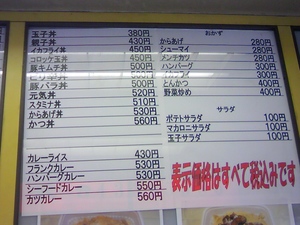 玉子丼 380円
親子丼 430円
イカフライ丼 450円
コロッケ玉丼 450円
豚キムチ丼 500円
500円
豚バラ丼 500円
元気丼 520円
スタミナ丼 510円
からあげ丼 530円
かつ丼 560円
カレーライス 430円
フランクカレー 530円
ハンバーグカレー 530円
シーフードカレー 550円
カツカレー 560円
おかず
からあげ 280円
シューマイ 280円
メンチカツ 280円
ハンバーグ 300円
イカフライ 300円
とんかつ 400円
野菜炒め 400円
サラダ
ポテトサラダ 100円
マカロニサラダ 100円
玉子サラダ 100円
表示価格はすべて税込みです